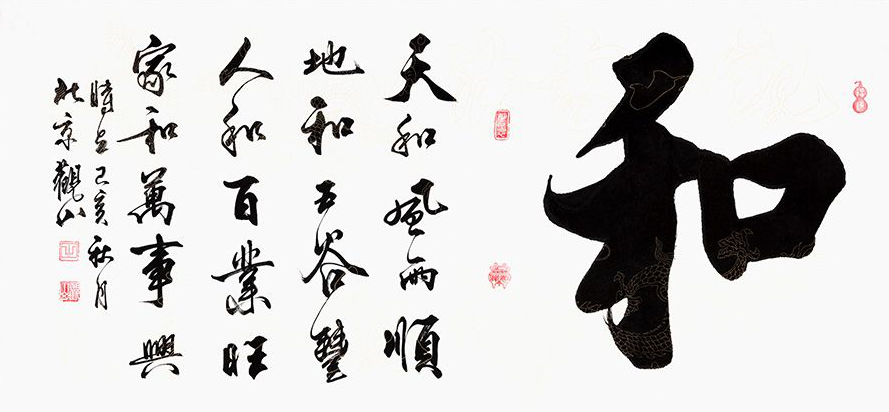 和
天和風雨順
地和五谷豐
人和百業旺
家和萬事興
時在己亥秋月
於京觀山